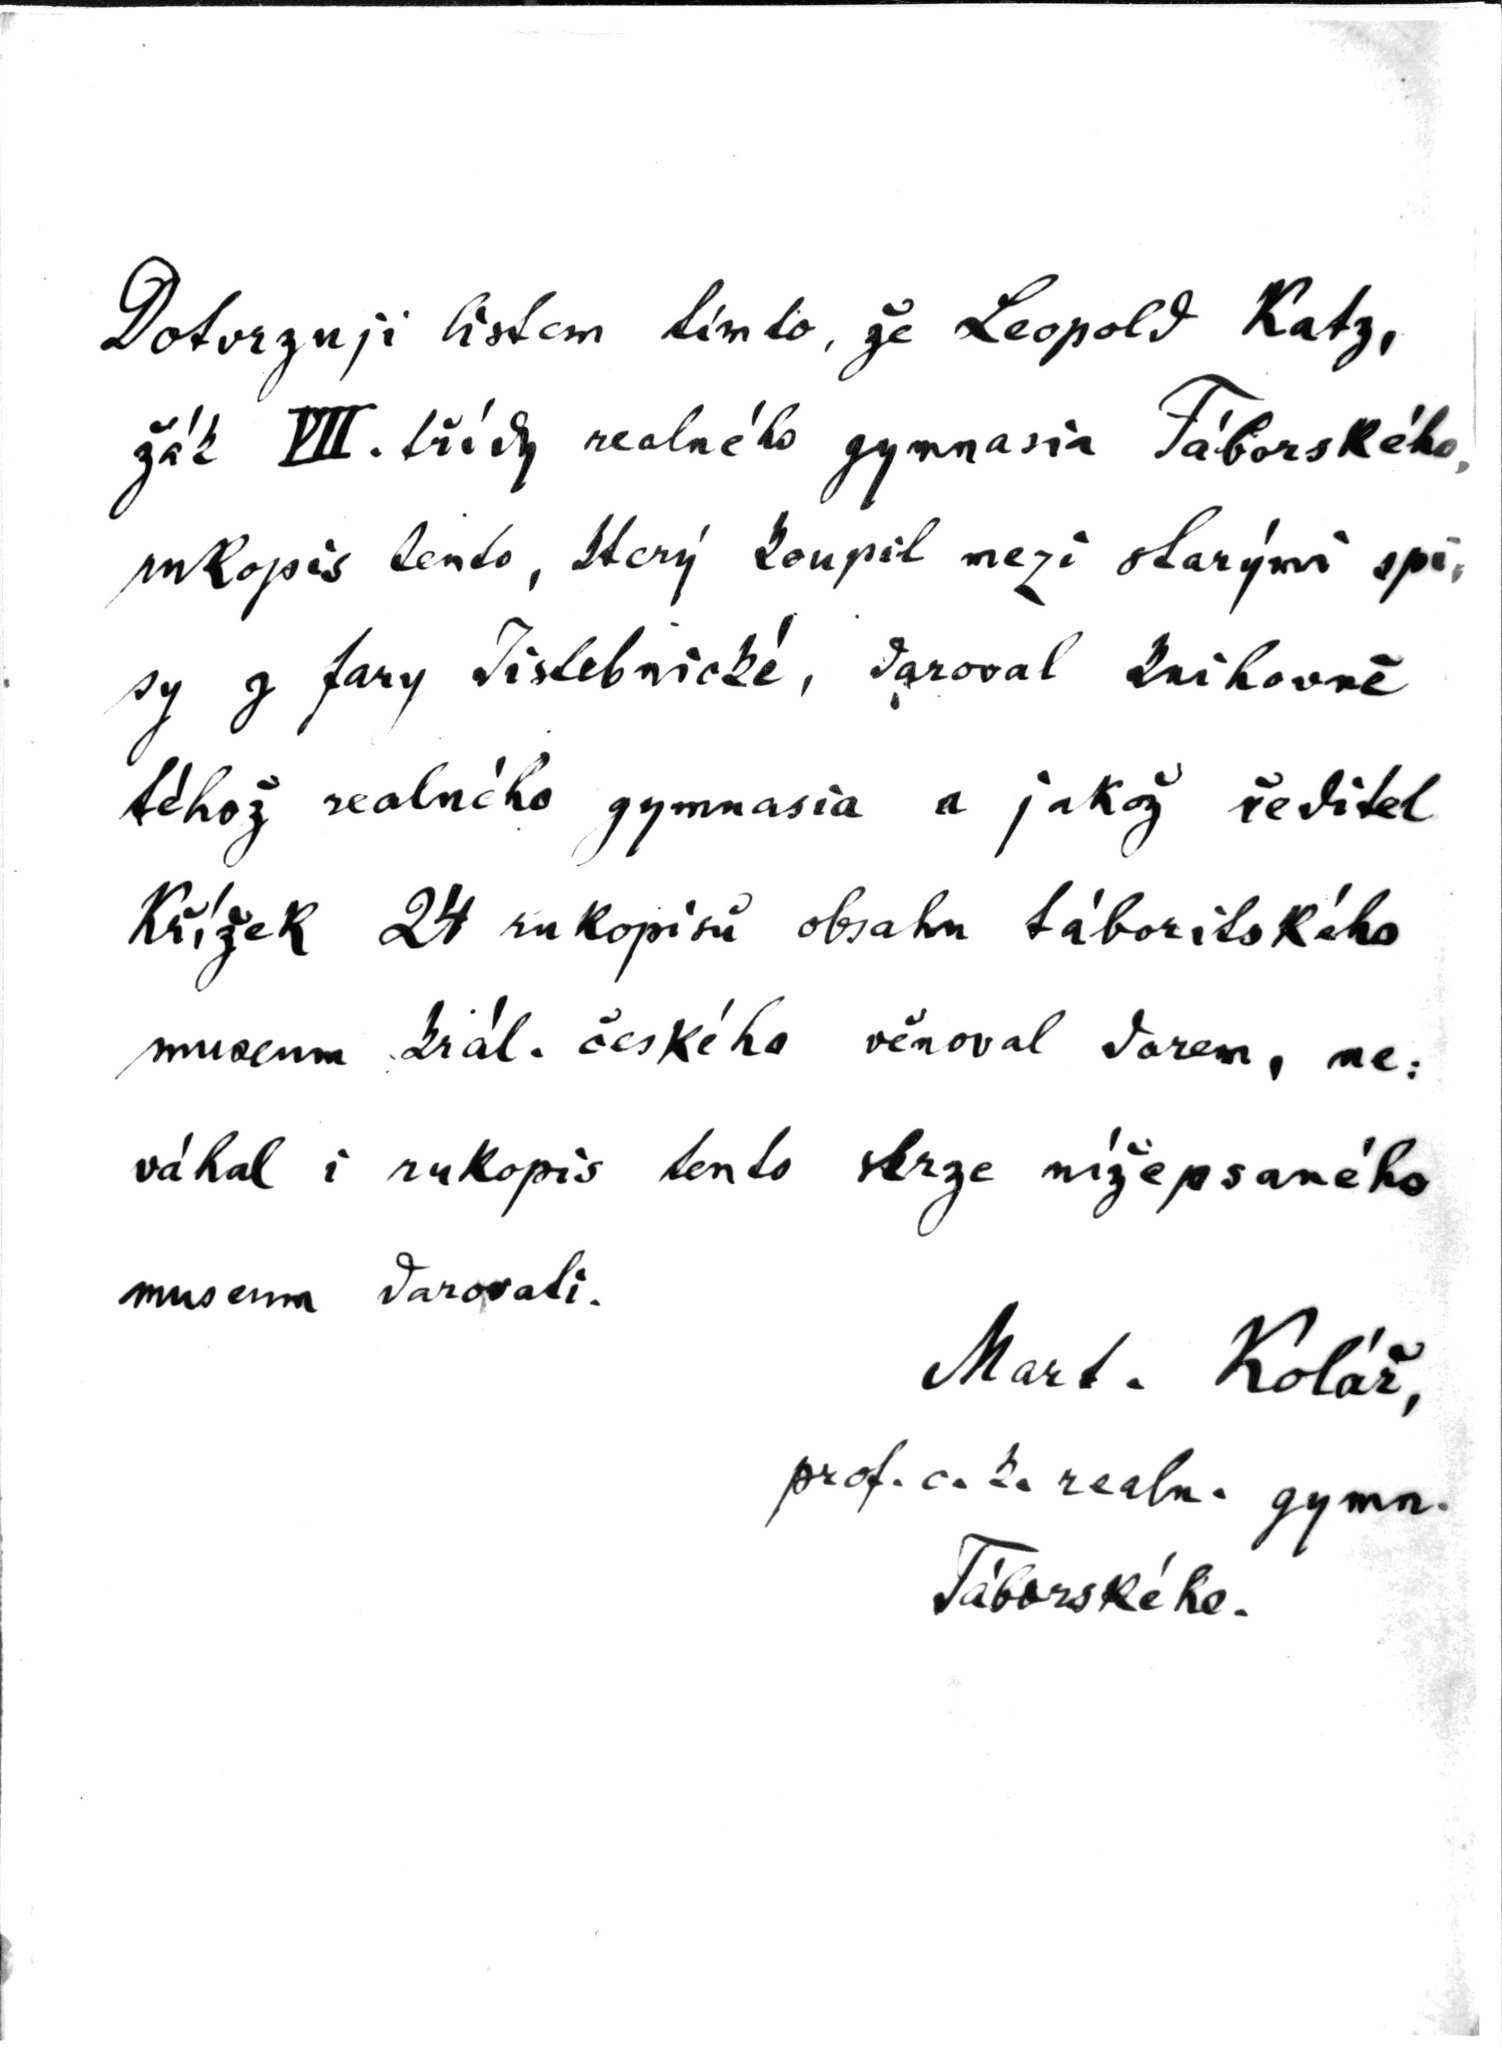 Dotvrzuji listem tímto, že Leopold Katz,
žák VII. třídy realného gymnasia Táborského,
rukopis tento, který koupil mezi starými spi-
sy z fary Jistebnické, daroval knihovně
téhož realného gymnasia a jakož ředitel
Křížek 24 rukopisů obsahu táboritského
museum král. českého věnoval darem, ne:
váhal i rukopis tento skrze nížepsaného
museum darovati.
Mart. Kolář,
prof. c. k. realn. gymn.
Táborského.